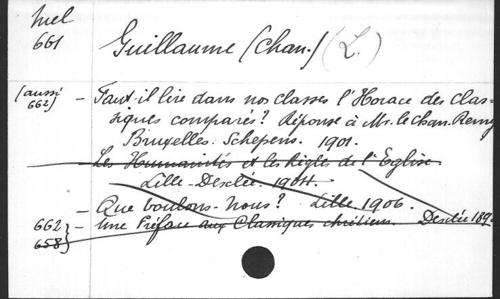 Mel
661
Guillaume (Chan.) (L.)
(aussi
662) – Faut-il lire dans nos classes l'Horace des clas-
siques comparés? Réponse à Mr. le Chan. Remy
Bruxelles. Schepens. 1901.
Les Humanités et les Règles de l'Eglise
Lille-Desclée. 1904.
– Que voulons-nous? Lille. 1906.
662 } – Une Préface aux Classiques chrétiens. Desclée 189
658